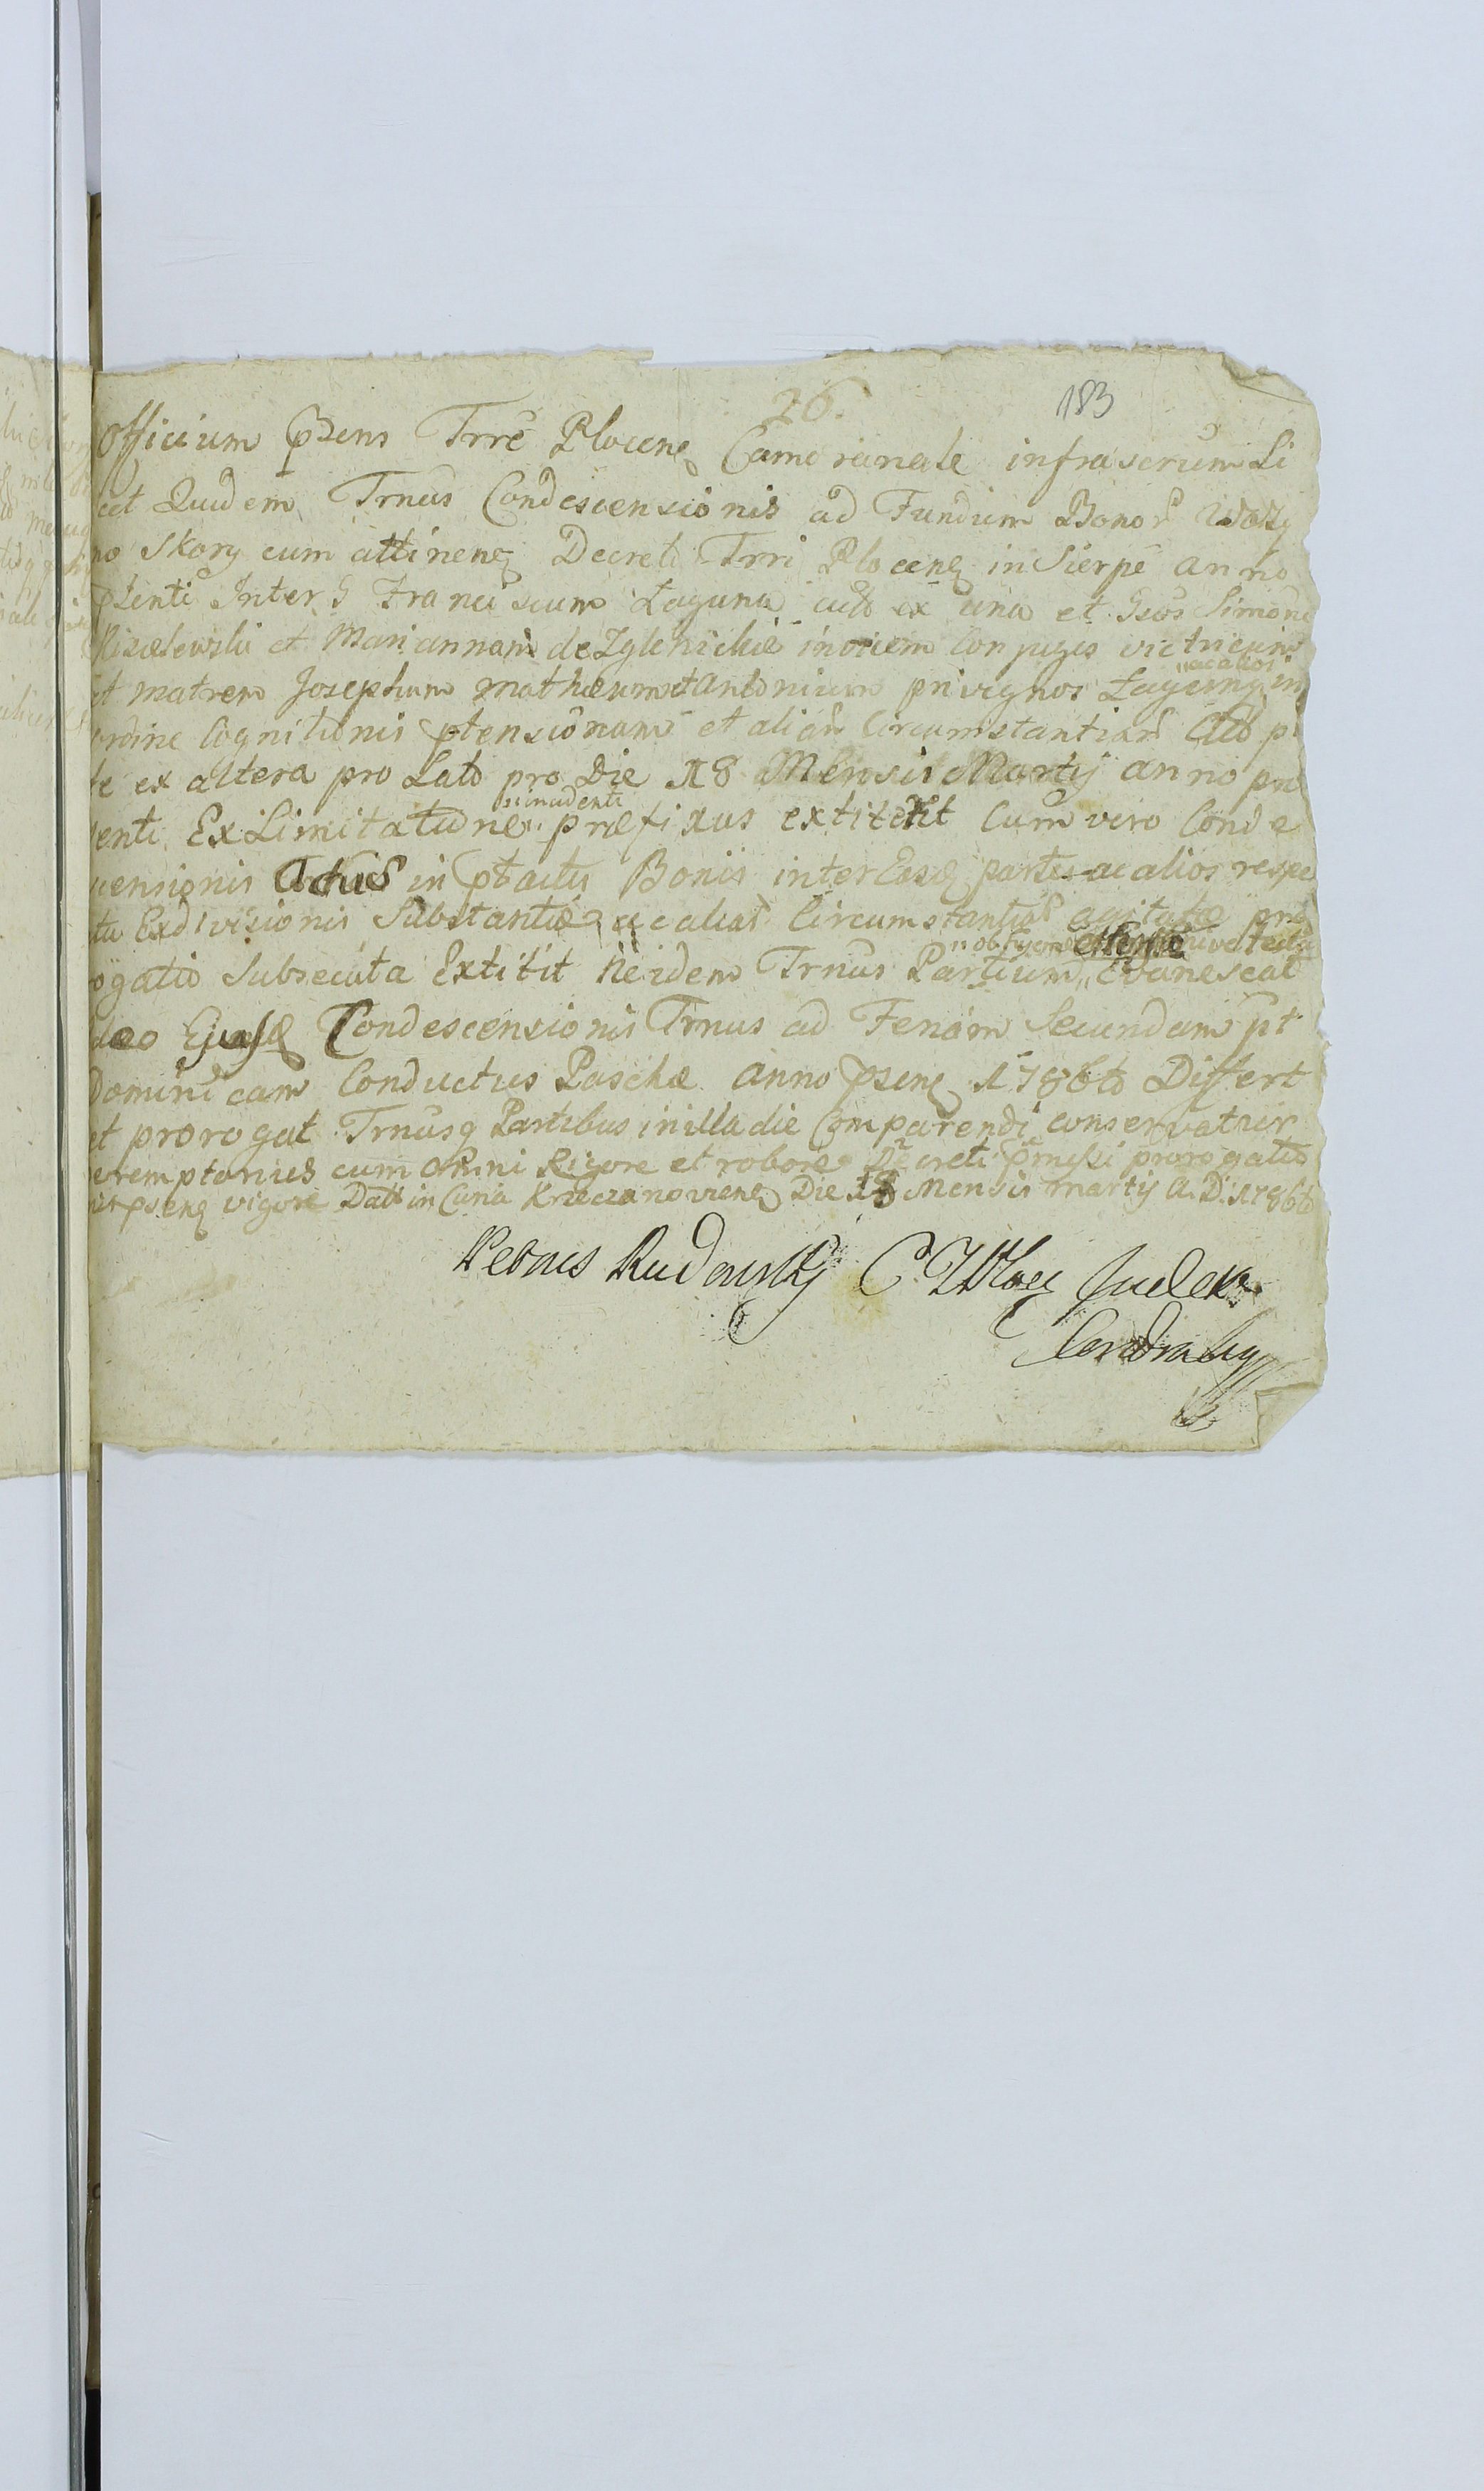 26.
183
Officium Pzens Trrē Plocenę Camerianale infrascrium Li
cet Quidem Trnus Condescensionis ad Fundum Bonor
no Skory cum attinenę Decreti Trri Plocenę in Sierpe anno
pzenti Inter G Franciscum Łaguna ex una et Gsos Simone
Kisielewski et Mariannam de Zglenickie Conjuges victricum
et matrem Josephum mathæum et Antonium privignos Łagunę in
ac alios
ordine Cognitionis ptensionum et aliar Circumstantiar
te ex altera pro Lato pro Die 18 Mensis Martij anno præ
senti Ex Limitatione præfixus extiterit Cum vero Conde
incidenti
scensionis Actus in ptactis Bonis inter Easę partes ac alios respe
ctu Exdivisionis Substantiæ ac aliar Circumstantiar agitatæ pro
rogatio Subsecuta Extitit Ne idem Trnus Partium Evanescat
ideo Ejusę Condescensionis Trnus ad Feriam Secundam pt
Dominicam Conductus Paschæ anno pzenę 1786to Differt
et prorogat Trnusq Partibus in illa die Comparendi conservatur
peremptorius cum omni Rigore et robore Decreti pmissi prorogatio
nis psenę vigore Datt in Curia Krzeczanovienę Die 18 Mensis Martij A. D. 1786to
Petrus Rudowskij C. Z. Ploc Judex